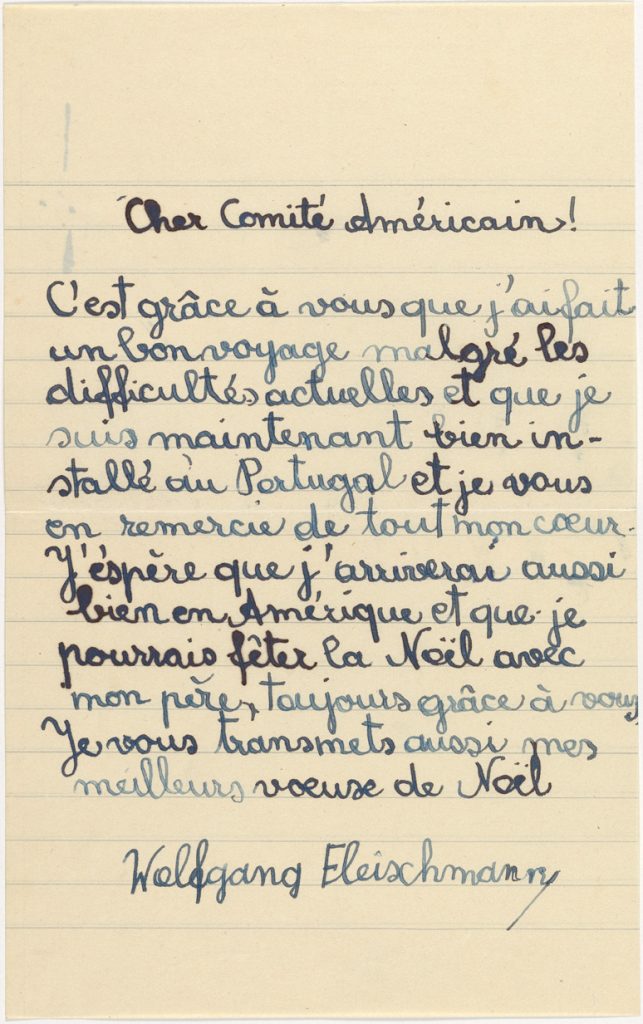 Cher Comité Américain!
C'est grâce à vous que j'ai fait
un bon voyage malgré les
difficultés actuelles et que je
suis maintenant bien in-
stallé au Portugal et je vous
en remercie de tout mon cœur.
J'éspère que j'arriverai aussi
bien en Amérique et que je
pourrais fêter la Noël avec
mon père, toujours grâce à vous.
Je vous transmets aussi mes
meilleurs vœuse de Noël
Wolfgang Fleischmann